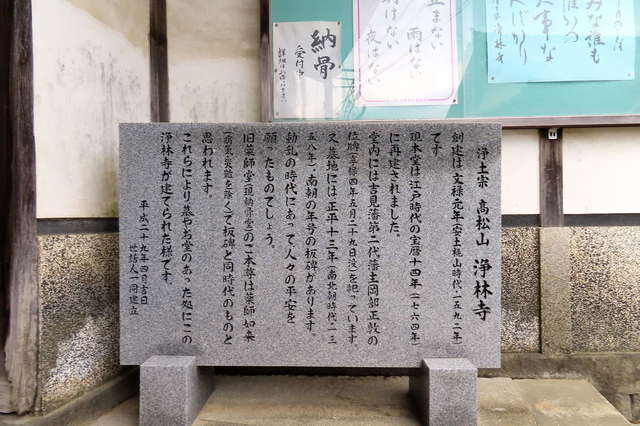 みな誰も
誰かの
大事な
止まない
雨はない
明けない
夜はない
納骨
受付中
浄土宗 高松山 浄林寺
創建は文禄元年(安土桃山時代、一五九二年)
です。
現本堂は江戸時代の宝暦十四年(一七六四年)
に再建されました。
堂内には吉見藩第二代藩主岡部正敦の
位牌(四年五月二十九日没)を祀っています
又墓地には正平十三年(南北朝時代一三
五八年)、南朝の年号の板碑があります。
動乱の時代にあって人々の平安を
願ったものでしょう。
旧薬師堂(現納骨堂)のご本尊は薬師如来
(病気、災難を除く)で板碑と同時代のものと
思われます。
これらにより墓やお堂のあった処にこの
浄林寺が建てられた様です。
平成二十九年四月吉日
世話人一同建立